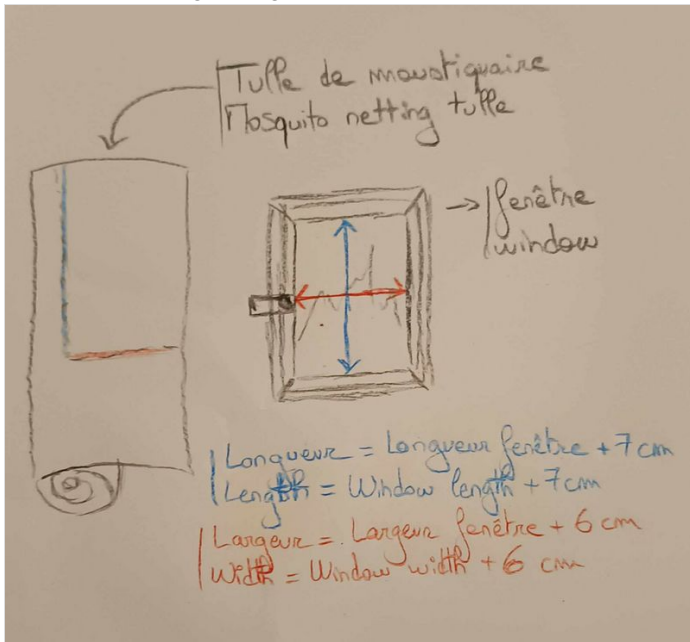 Tulle de moustiquaire
Mosquito netting tulle
fenêtre
window
Longueur = Longueur fenêtre + 7 cm
Length = Window length + 7 cm
Largeur = Largeur fenêtre + 6 cm
Width = Window width + 6 cm